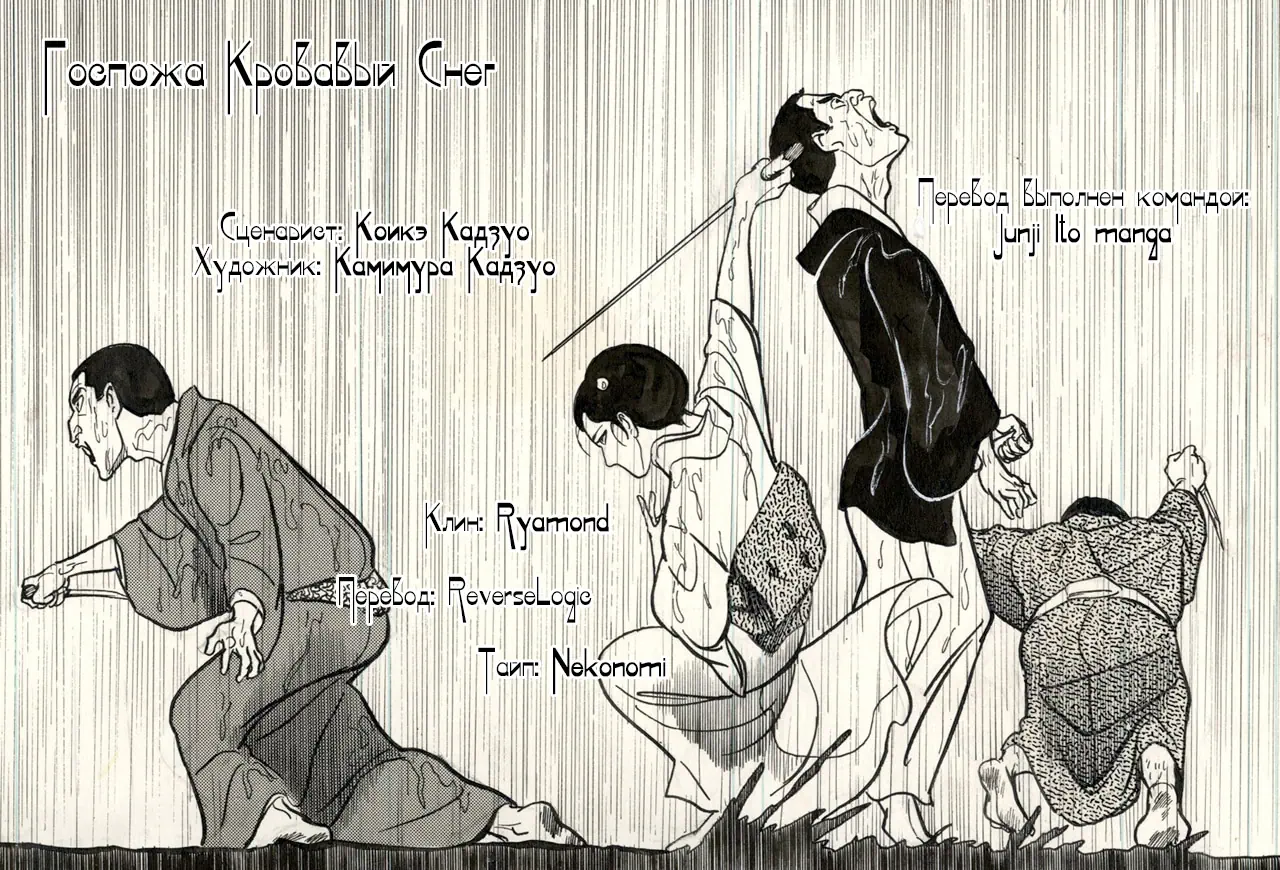 Госпожа Кровавый Снег
Сценарист: Коикэ Кадзуо
Художник: Камимура Кадзуо
Перевод выполнен командой:
Junji Ito manga
Клин: Ryamond
Перевод: ReverseLogic
Тайп: Nekonomi